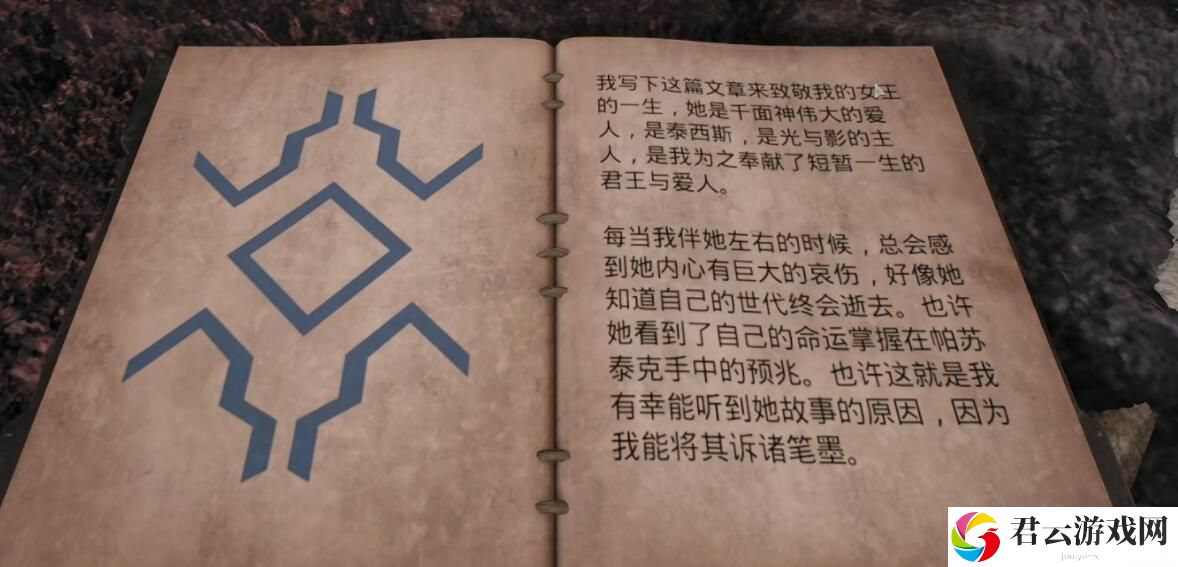 我写下这篇文章来致敬我的女王
的一生，她是千面神伟大的爱
人，是泰西斯，是光与影的主
人，是我为之奉献了短暂一生的
君王与爱人。
每当我伴她左右的时候，总会感
到她内心有巨大的哀伤，好像她
知道自己的世代终会逝去。也许
她看到了自己的命运掌握在帕苏
泰克手中的预兆。也许这就是我
有幸能听到她故事的原因，因为
我能将其诉诸笔墨。
君云游戏网